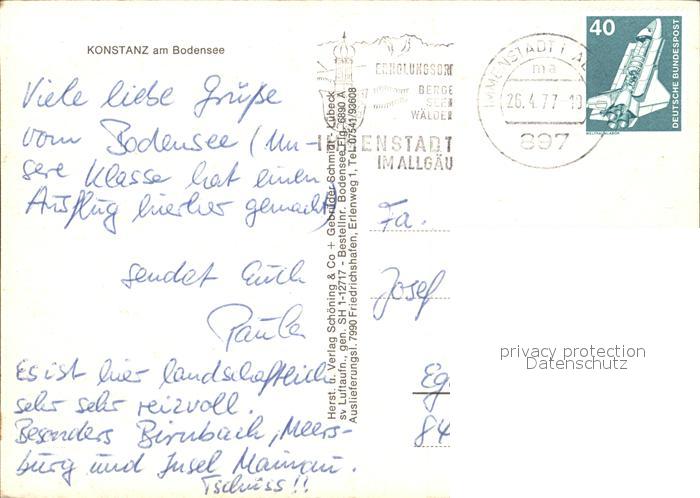 KONSTANZ am Bodensee
Viele liebe Grüße
vom Bodensee (Un-
sere Klasse hat einen
Ausflug hierher gemacht)
sendet Euch
Paula
Es ist hier landschaftlich
sehr sehr reizvoll.
Besonders Birnbach, Meers-
burg und Insel Mainau.
Tschüss!!
Herst. u. Verlag Schöning & Co + Gebrüder Schmidt, Lübeck
sv Luftaufn., gen. SH 1-12717 - Bestellnr. Bodensee Flg. 6890 A
Auslieferungsl. 7990 Friedrichshafen, Erlenweg 1, Tel. 07541/93608
ERHOLUNGSORT
BERGE
SEEN
WÄLDER
IMMENSTADT
IM ALLGÄU
IMMENSTADT I. AL
ma
26.4.77-19
897
40
DEUTSCHE BUNDESPOST
WELTRAUMLABOR
Fa.
Josef
Eg
84
privacy protection
Datenschutz